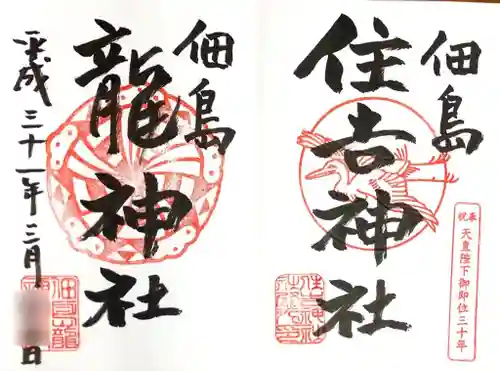 佃島
住吉神社
奉祝 天皇陛下御即位三十年
佃島
龍神社
平成三十一年三月 日